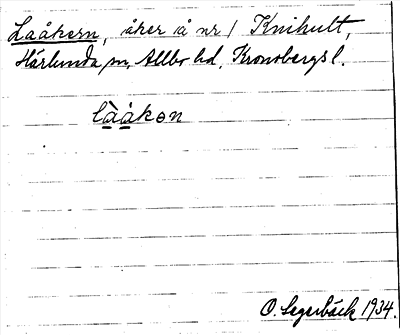 Laåkern, åker å nr 1 Knihult,
Härlunda sn, Allbo hd, Kronobergs l.
làåkən
O. Segerbäck 1934.